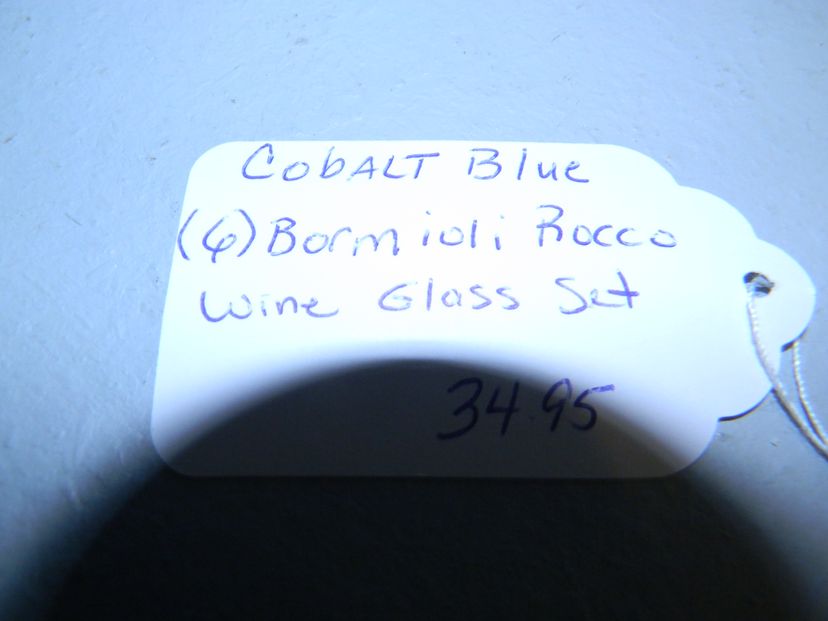 Cobalt Blue
(6) Bormioli Rocco
Wine Glass Set
34.95